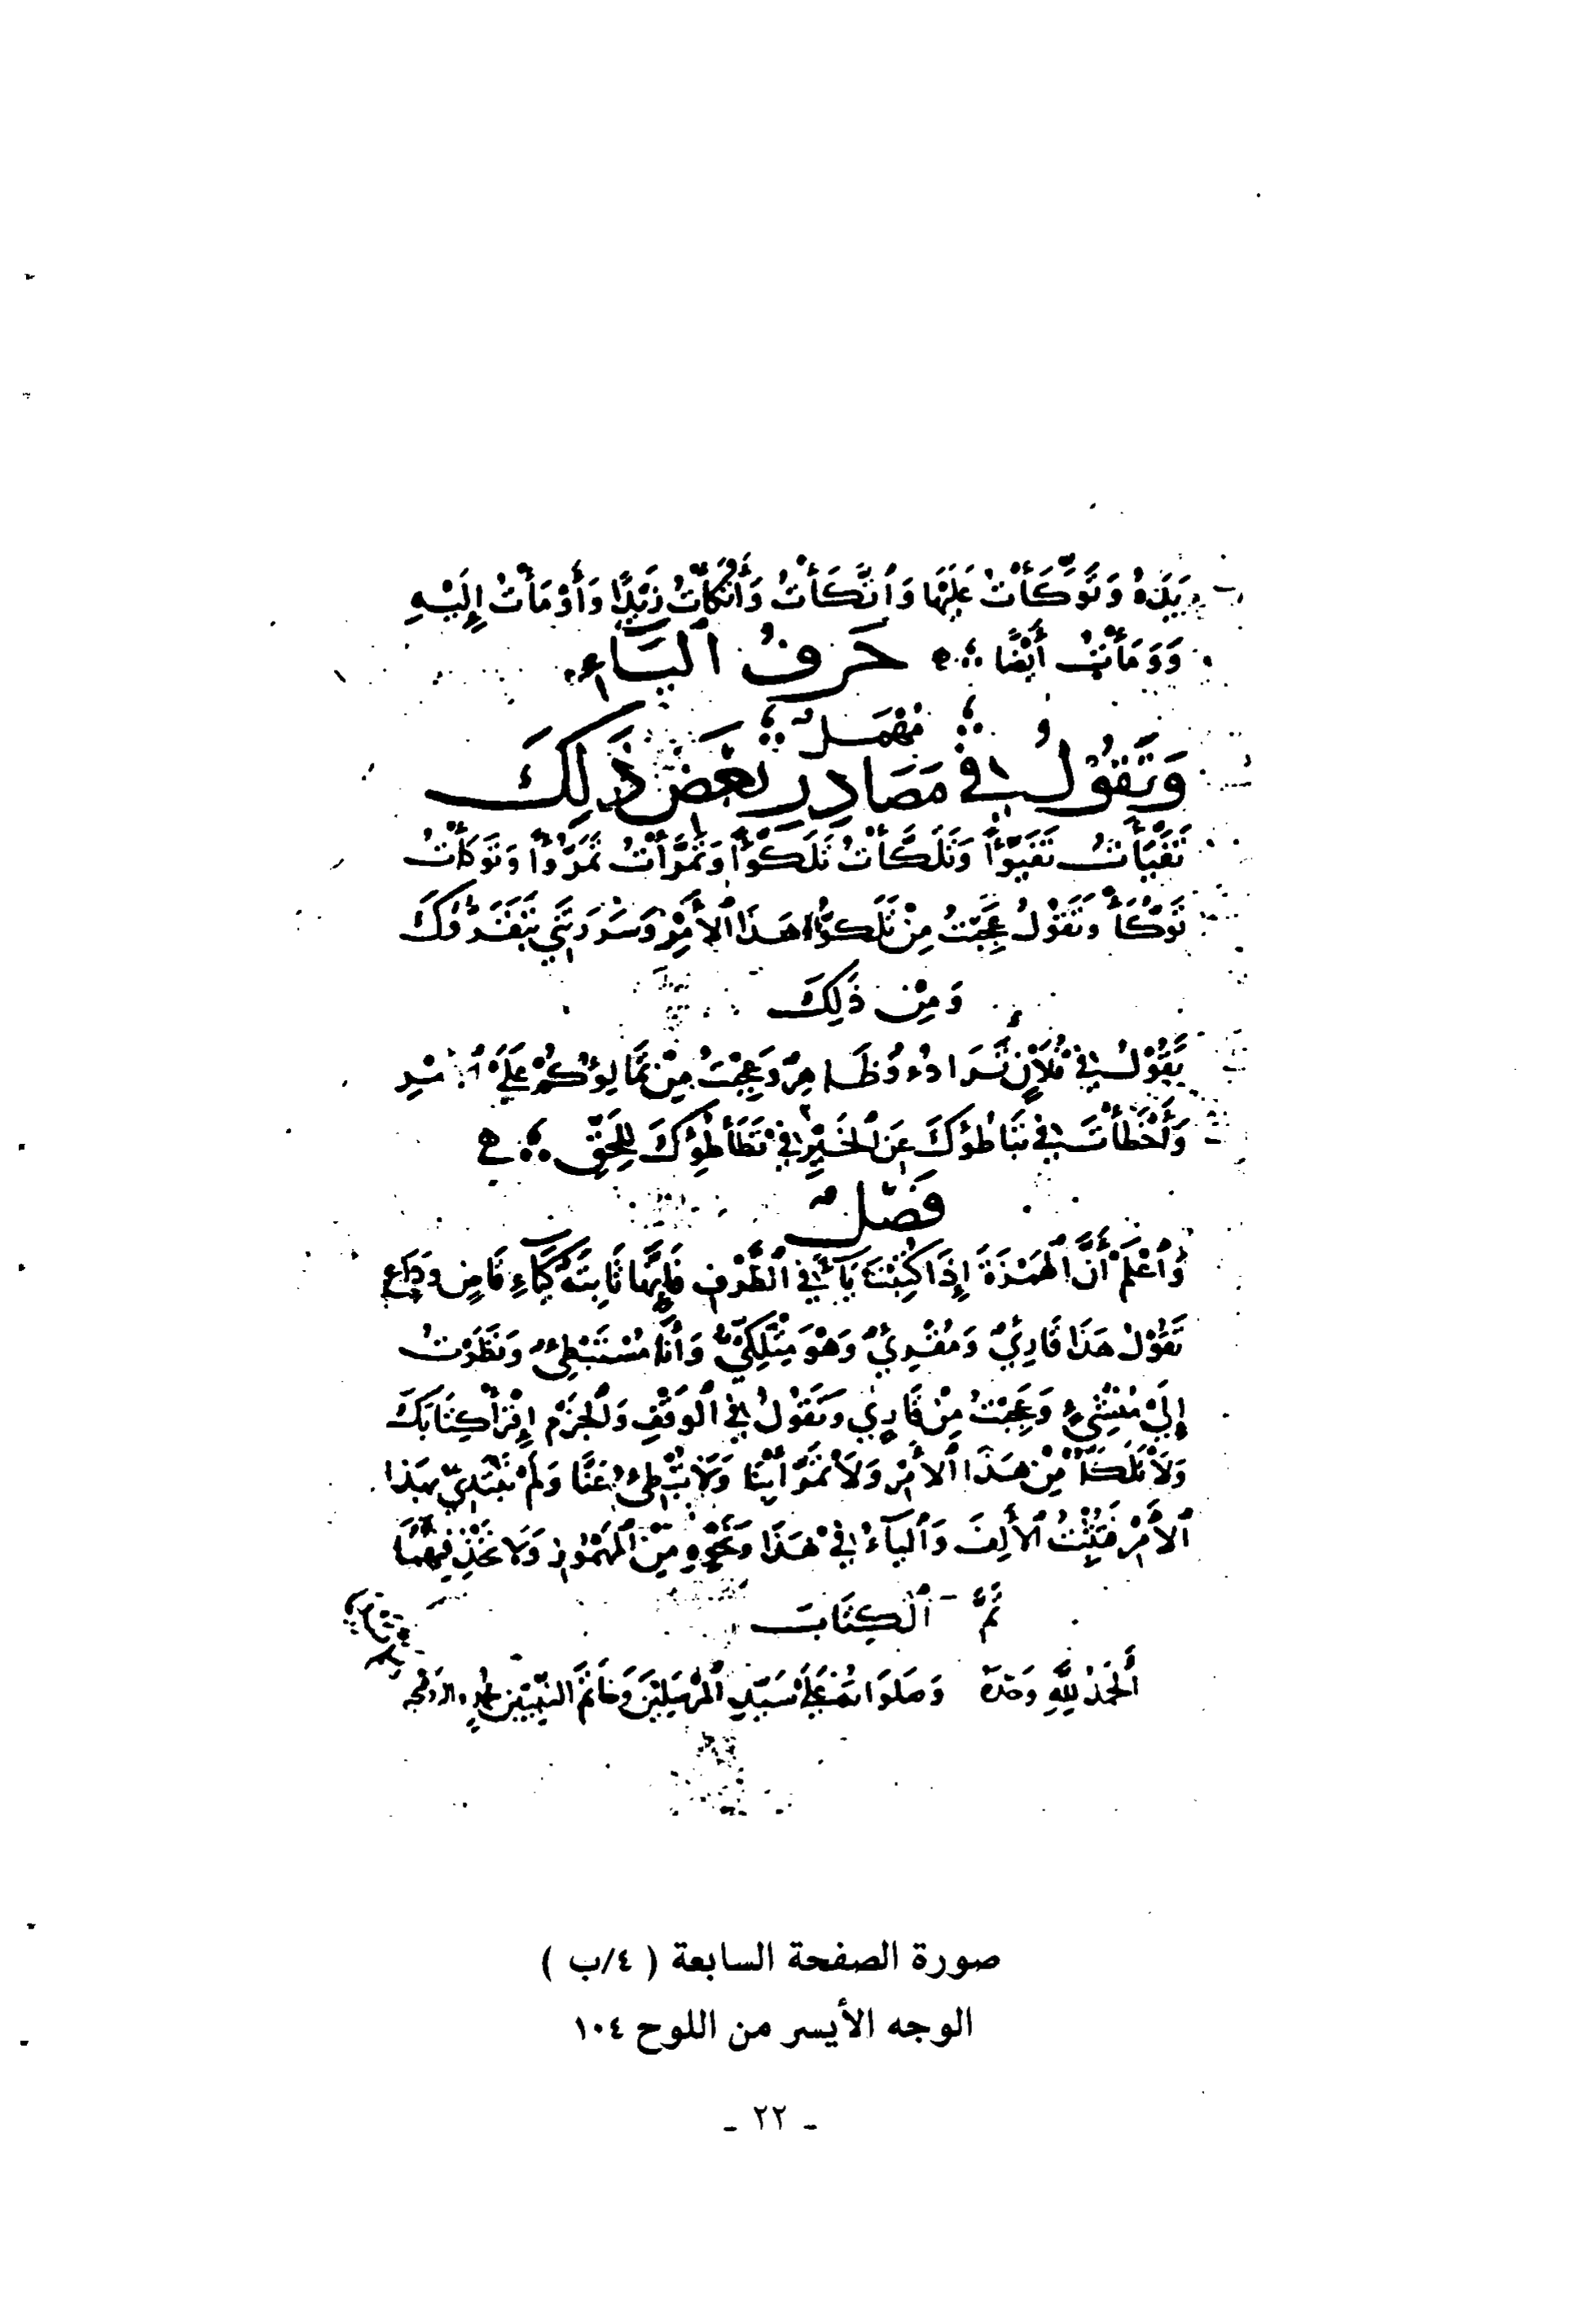 يَدَهُ وَتَوَكَّأْتُ عَلَيْهَا وَاتَّكَأْتُ وَأَتْكَأْتُ زَيْدًا وَأَوْمَأْتُ إِلَيْهِ
وَوَمَأْتُ أَيْضًا حَرْفُ الْيَاءِ
مُهْمَلٌ
وَتَقُولُ فِي مَصَادِرِ بَعْضِ ذَلِكَ
تَفَيَّأْتُ تَفَيُّؤًا وَتَلَكَّأْتُ تَلَكُّؤًا وَتَمَرَّأْتُ تَمَرُّؤًا وَتَوَكَّأْتُ
تَوَكُّأً وَتَقُولُ عَجِبْتُ مِنْ تَلَكُّؤِ هَذَا الْأَمْرِ وَسَرَّنِي
وَمِنْ ذَلِكَ
تَقُولُ فِي فُلَانٍ وَعَجِبْتُ مِنْ تَمَالُؤِكُمْ عَلَى
وَأَخْطَأْتَ فِي تَبَاطُؤِكَ عَنِ الْخَيْرِ فِي تَطَأْطُؤِكَ لِلْحَقِّ
فَصْلٌ
وَاعْلَمْ أَنَّ الْهَمْزَةَ إِذَا كُتِبَتْ يَاءً فِي الطَّرْفِ فَإِنَّهَا ثَابِتَةٌ كَيَاءِ قَاضٍ وَدَاعٍ
تَقُولُ هَذَا قَارِئٌ وَمُقْرِئٌ وَهُوَ مُتَّكِئٌ وَأَنَا مُسْتَبْطِئٌ وَنَظَرْتُ
إِلَى مُنْشِئٍ وَعَجِبْتُ مِنْ قَارِئٍ وَتَقُولُ فِي الْوَقْفِ وَالْجَزْمِ اِقْرَأْ كِتَابَكَ
وَلَا تَلَكَّأْ مِنْ هَذَا الْأَمْرِ وَلَا تَبْطِئْ عَنَّا وَلَمْ نَبْتَدِئْ بِهَذَا
الْأَمْرِ فَتُثْبِتُ الْأَلِفَ وَالْيَاءَ فِي هَذَا وَنَحْوِهِ مِنَ الْمَهْمُوزِ وَلَا تَحْذِفُهُمَا
تَمَّ الْكِتَابُ
الْحَمْدُ لِلَّهِ وَحْدَهُ وَصَلَوَاتُهُ عَلَى سَيِّدِ الْمُرْسَلِينَ وَخَاتَمِ النَّبِيِّينَ
صورة الصفحة السابعة ( ٤/ب )
الوجه الأيسر من اللوح ١٠٤
- ٢٢ -